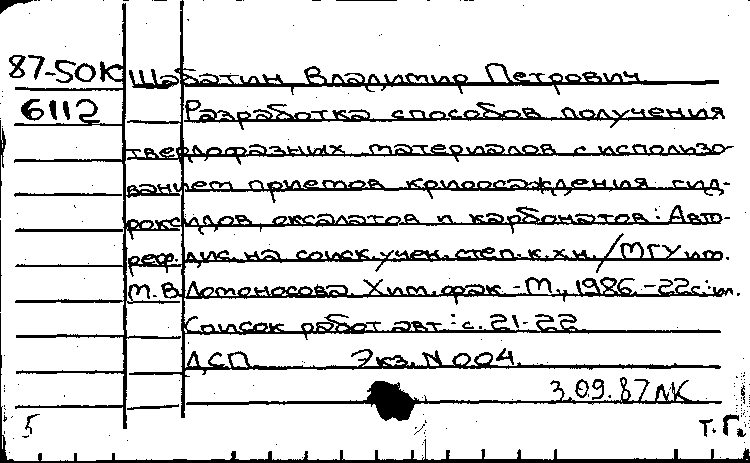 87-50К Шабатин, Владимир Петрович
6112 Разработка способов получения
твердофазных материалов с использо-
ванием приемов криоосаждения гид-
роксидов, оксалатов и карбонатов: Авто-
реф. дис. на соиск. учен. степ. к.х.н. / МГУ им.
М.В. Ломоносова. Хим. фак. - М., 1986. - 22с.: ил.
Список работ авт.: с. 21-22.
ДСП Экз. N 004.
3.09.87 ЛК
5 Т. Г.